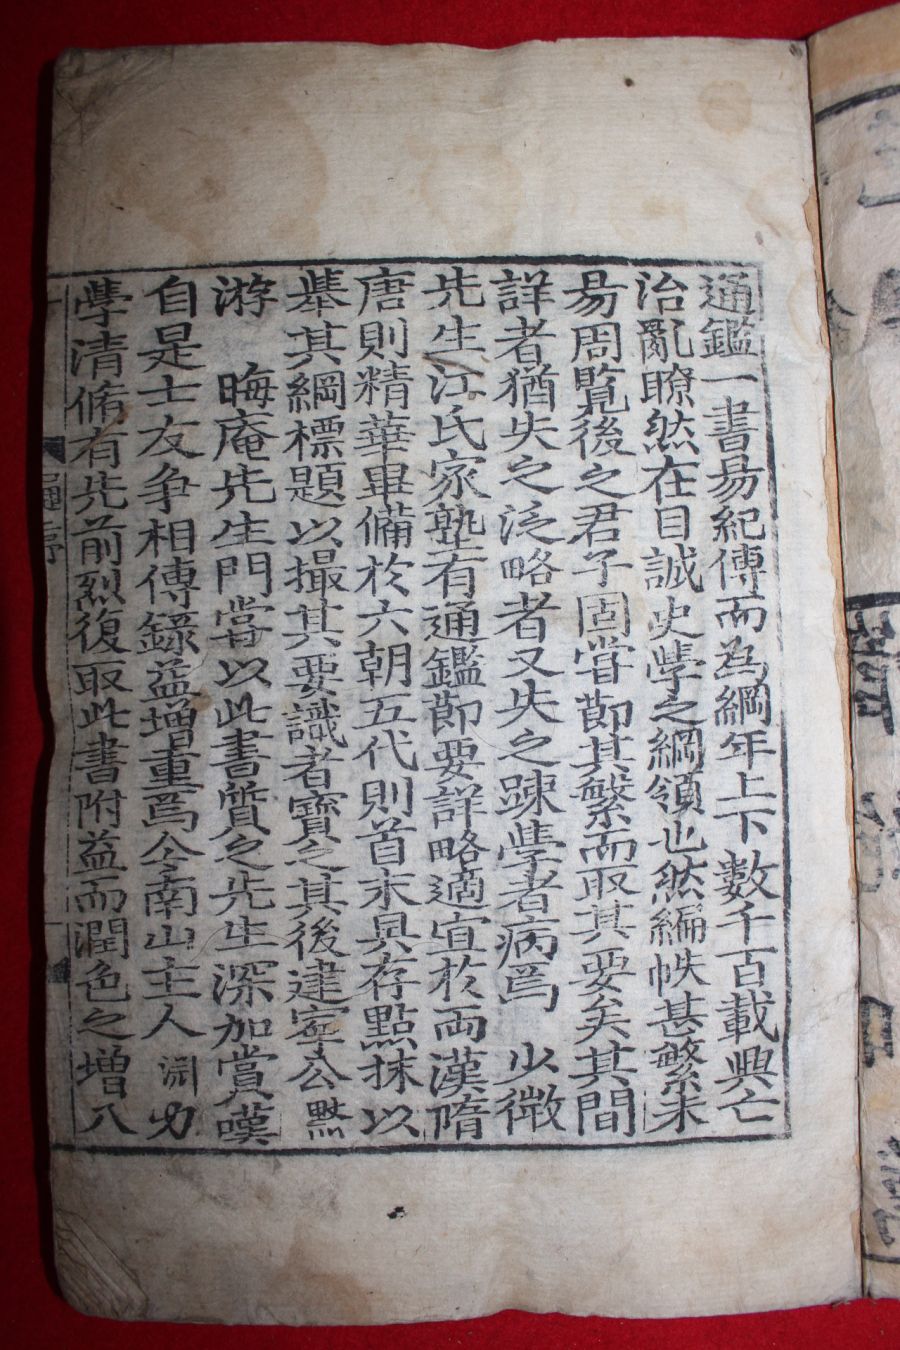 通鑑一書易紀傳而為綱年上下數千百載興亡
治亂瞭然在目誠史學之綱領也然編帙甚繁未
易周覽後之君子固嘗節其繁而取其要矣其間
詳者猶失之泛略者又失之踈學者病焉 少微
先生江氏家塾有通鑑節要詳略適宜於兩漢隋
唐則精華畢備於六朝五代則首末具存點抹以
舉其綱標題以撮其要識者寶之其後建寧公默
游 晦庵先生門嘗以此書質之先生深加賞嘆
自是士友爭相傳錄益增重焉今南山主人淵力
學清脩有先前烈復取此書附益而潤色之增八